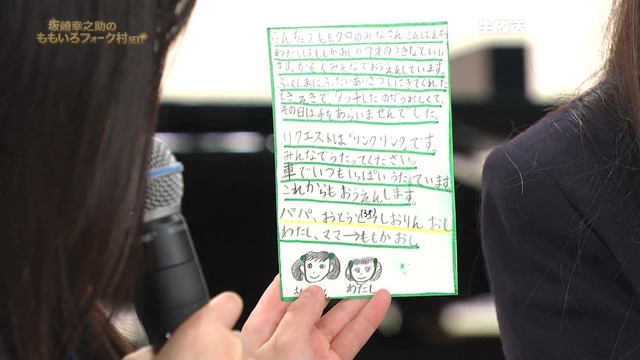 坂崎幸之助の
ももいろフォーク村NEXT
生放送
そんちょう、ももクロのみなさん、こんばんわ。
わたしはももかおしの7才のつきなといい
ます。かぞくみんなでおうえんしています。
ふくしまに、ぶたいあいさつにきてくれた
とき、えきで、タッチしたのがうれしくて、
その日は手をあらいませんでした。
リクエストは「リンクリンク」です。
みんなでうたってください。
車でいつもいっぱいうたっています。
これからもおうえんします。
パパ、おとうと(3才)しおりんおし
わたし、ママ→ももかおし
わたし